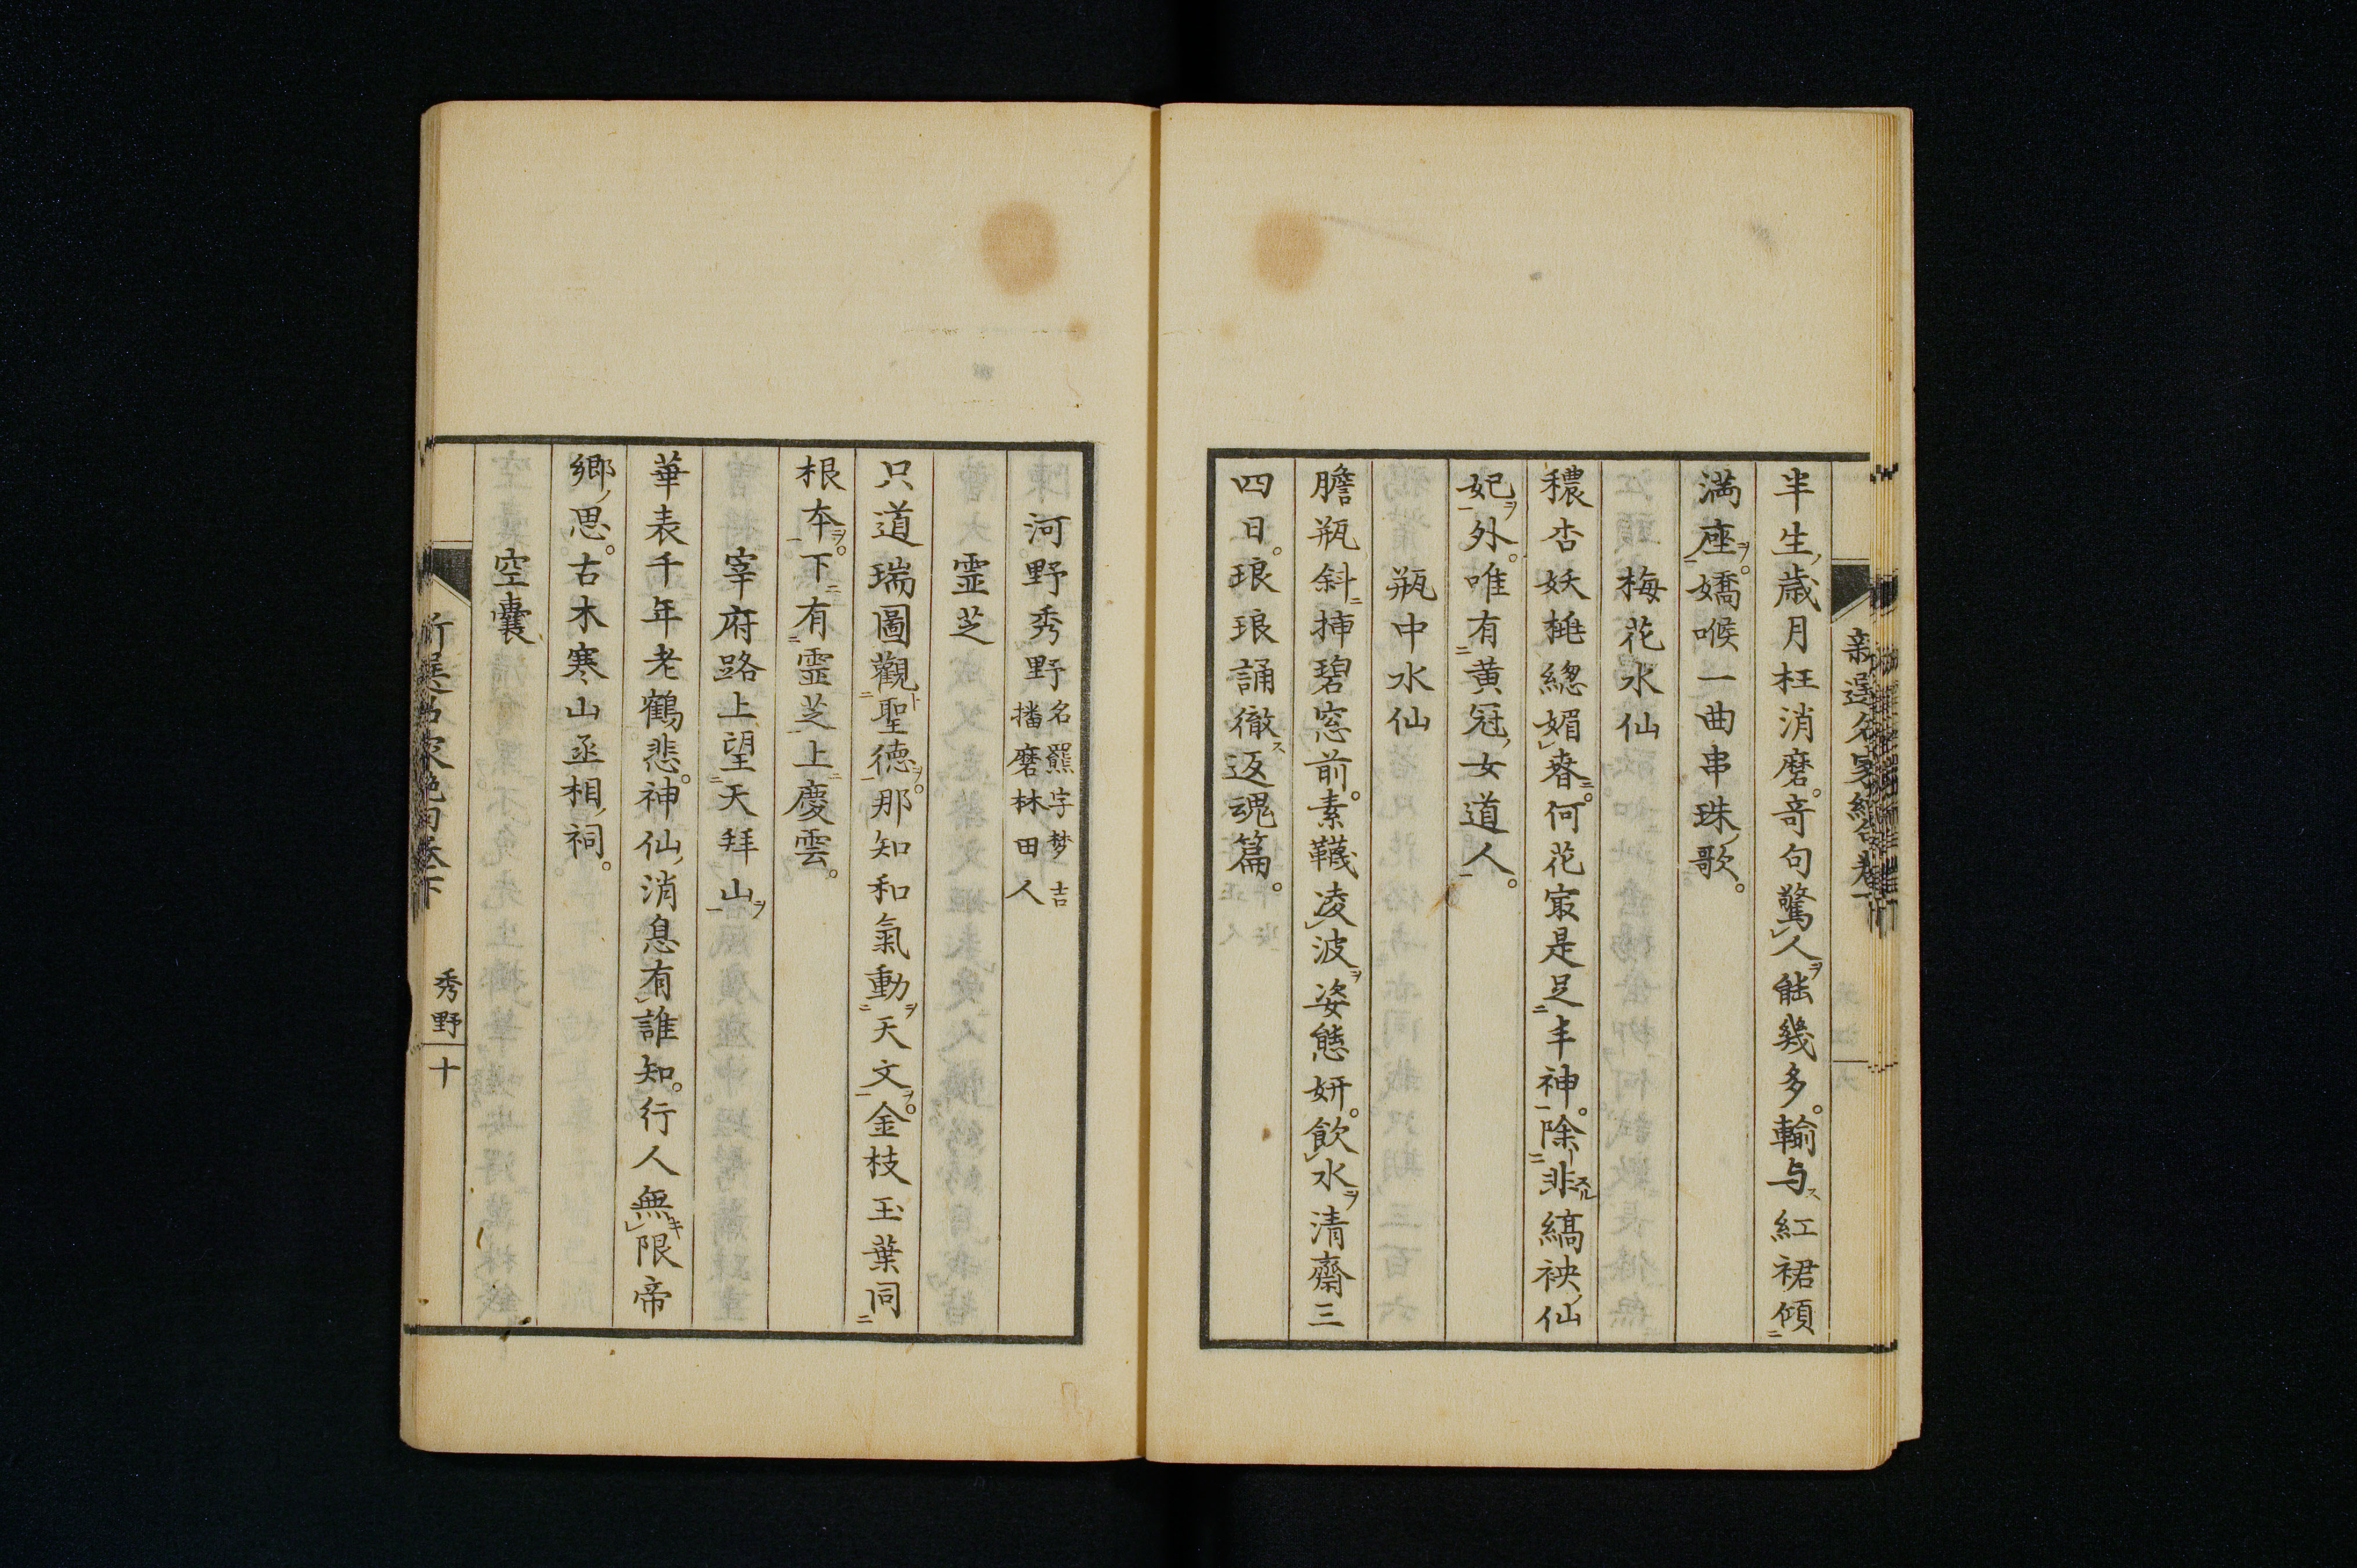 半生歳月枉消磨。奇句驚人能幾多。輸与紅裙傾
満座。嬌喉一曲串珠歌。
梅花水仙
穠杏妖桃總媚春。何花寂是足丰神。除非縞袂仙
妃外。唯有黄冠女道人。
瓶中水仙
膽瓶斜挿碧窓前。素韈凌波姿態妍。飲水清齋三
四日。琅琅誦徹返魂篇。
河野秀野 名羆字梦吉
播磨林田人
霊芝
只道瑞圖觀聖徳。那知和氣動天文。金枝玉葉同
根本。下有霊芝上慶雲。
宰府路上望天拜山
華表千年老鶴悲。神仙消息有誰知。行人無限帝
鄉思。古木寒山丞相祠。
空囊
秀野 十